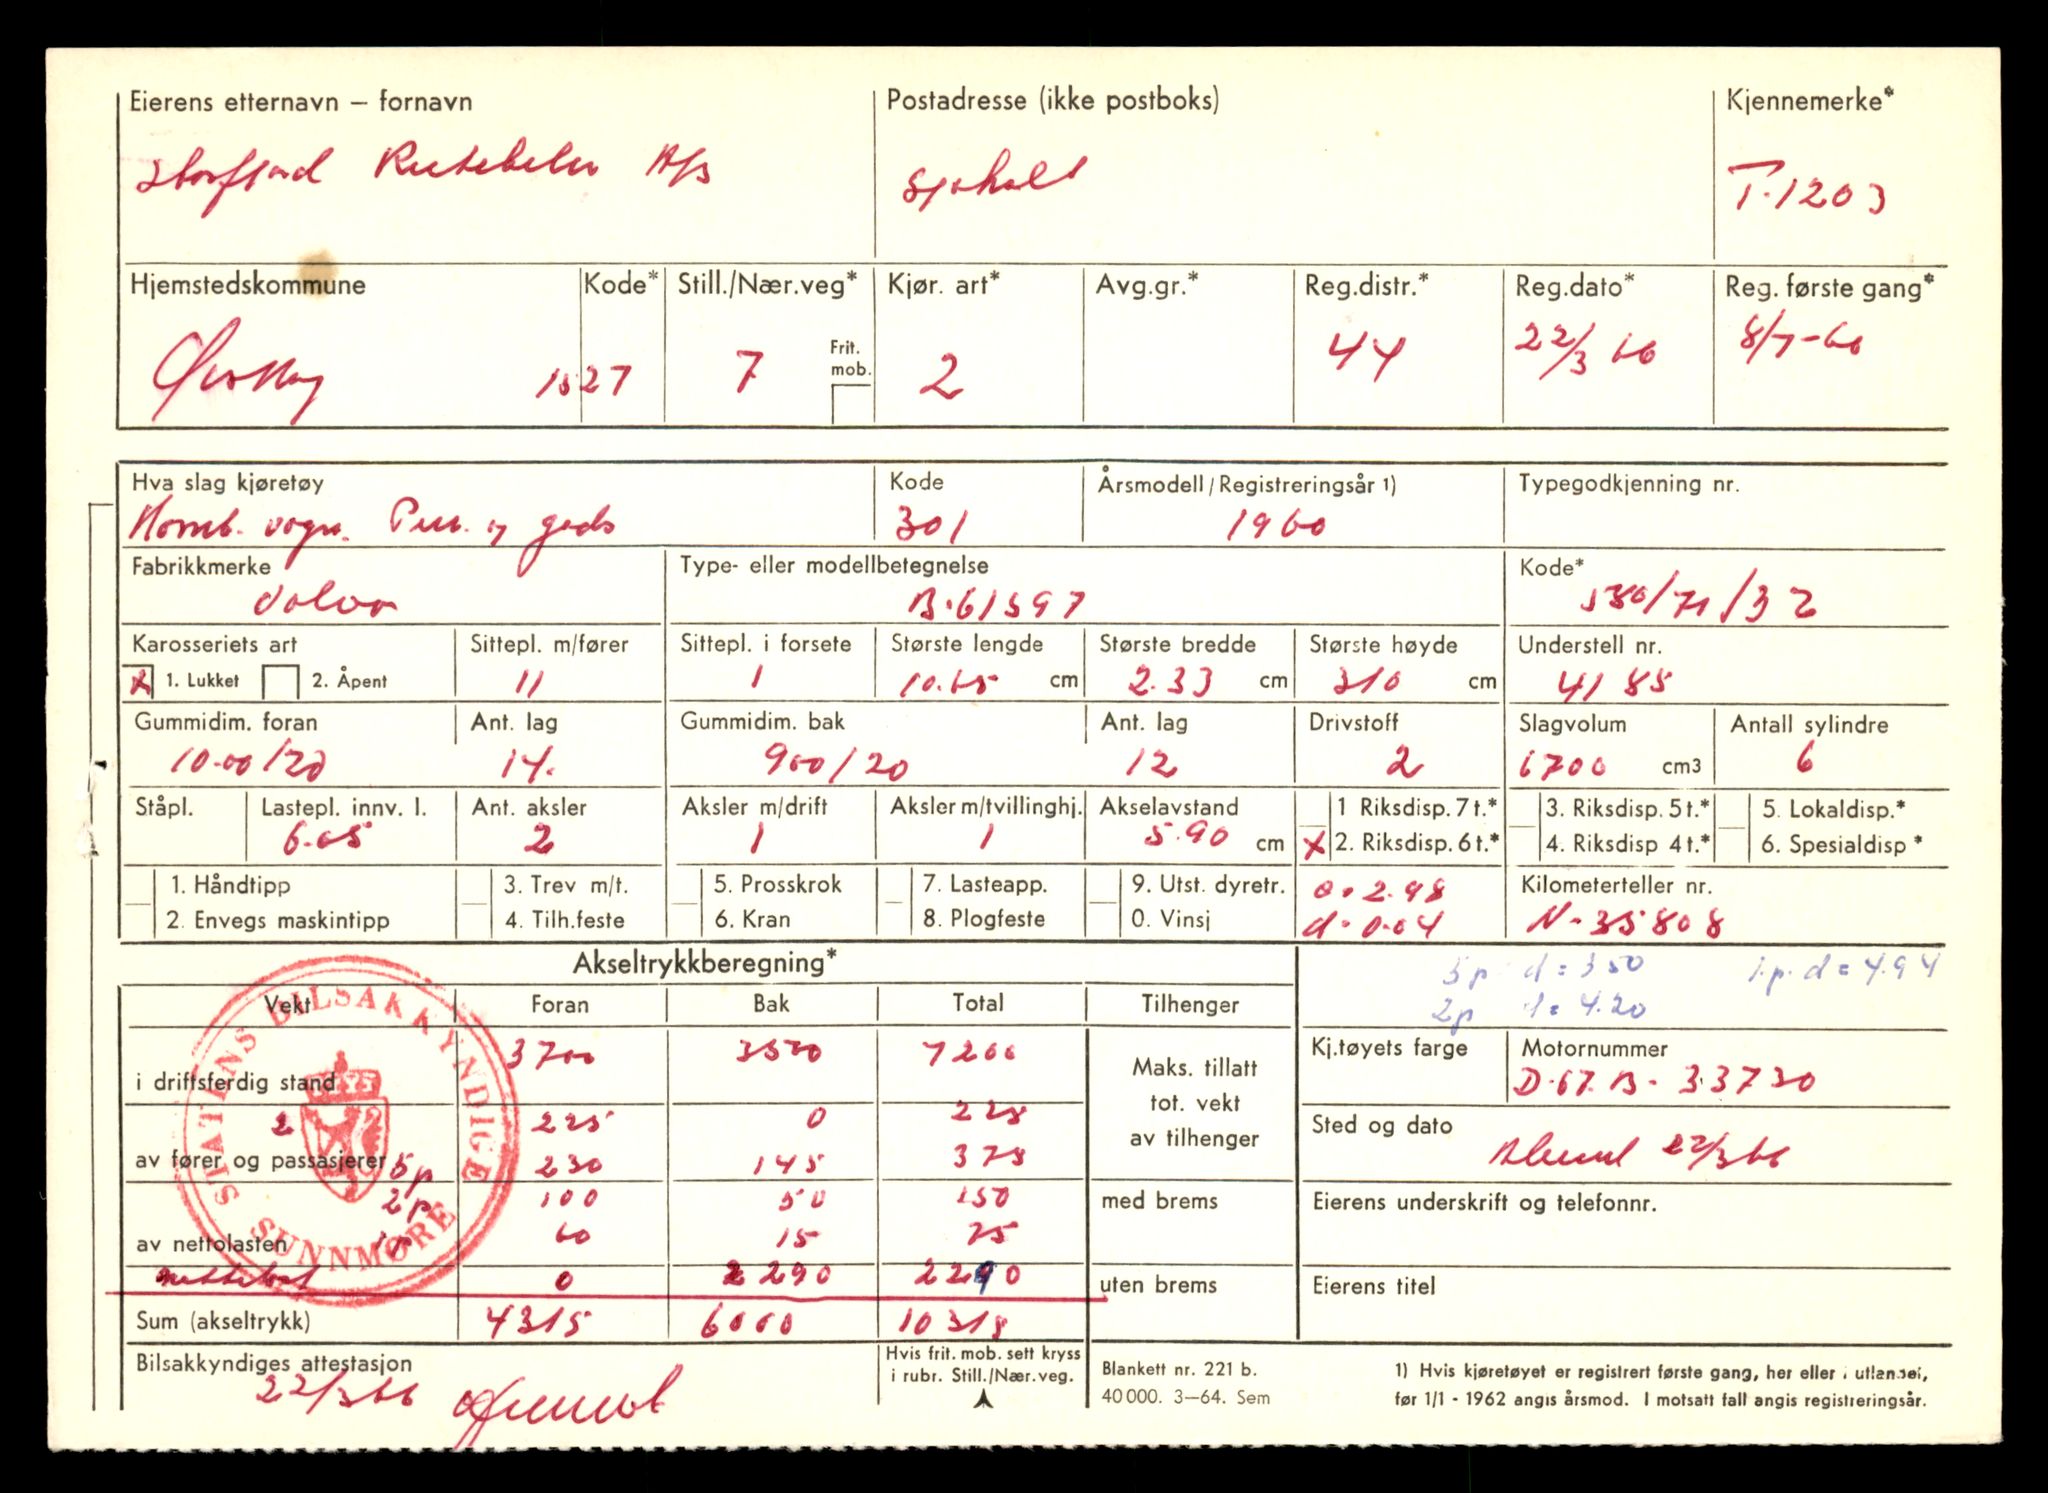 Eierens etternavn – fornavn
Storfjord Rutebiler A/S
Postadresse (ikke postboks)
Sjøholt
Kjennemerke*
T-1203
Hjemstedskommune
Ørskog
Kode*
1527
Still./Nær.veg*
7
Frit. mob.
Kjør. art*
2
Avg.gr.*
Reg.distr.*
44
Reg.dato*
22/3 66
Reg. første gang*
8/7-60
Hva slag kjøretøy
Komb. vogn. Pers. og gods
Kode
301
Årsmodell/Registreringsår 1)
1960
Typegodkjenning nr.
Fabrikkmerke
Volvo
Type- eller modellbetegnelse
B-61597
Kode*
Karosseriets art
X 1. Lukket 2. Åpent
Sittepl. m/fører
11
Sittepl. i forsete
1
Største lengde
10.65 cm
Største bredde
2.33 cm
Største høyde
310 cm
Understell nr.
4185
Gummidim. foran
10.00/20
Ant. lag
14.
Gummidim. bak
900/20
Ant. lag
12
Drivstoff
2
Slagvolum
6700 cm3
Antall sylindre
6
Ståpl.
Lastepl. innv. l.
6.05
Ant. aksler
2
Aksler m/drift
1
Aksler m/tvillinghj.
1
Akselavstand
5.90 cm
1 Riksdisp. 7 t.*
X 2. Riksdisp. 6 t.*
3. Riksdisp. 5 t.*
4. Riksdisp 4 t.*
5. Lokaldisp.*
6. Spesialdisp*
1. Håndtipp
2. Envegs maskintipp
3. Trev m/t.
4. Tilh.feste
5. Prosskrok
6. Kran
7. Lasteapp.
8. Plogfeste
9. Utst. dyretr.
0. Vinsj
a = 2.98
d = 0.04
Kilometerteller nr.
N-35808
Akseltrykkberegning*
5p d = 350 1.p. d = 4.94
2p d = 4.20
Vekt Foran Bak Total Tilhenger
i driftsferdig stand 3700 3500 7200
2 225 0 225
av fører og passasjerer 5p 230 145 375
2p 100 50 150
av nettolasten 1p 60 15 75
nettolast 0 2290 2290
Sum (akseltrykk) 4315 6000 10315
Maks. tillatt
tot. vekt
av tilhenger
med brems
uten brems
Kj.tøyets farge
Motornummer
D.67.B - 33730
Sted og dato
Ålesund 22/3 66
Eierens underskrift og telefonnr.
Eierens titel
Bilsakkyndiges attestasjon
22/3 66
Hvis frit. mob. sett kryss
i rubr. Still./Nær.veg.
Blankett nr. 221 b.
40 000. 3—64. Sem
1) Hvis kjøretøyet er registrert første gang, her eller i utlandet,
før 1/1 - 1962 angis årsmod. I motsatt fall angis registreringsår.
STATENS BILSAKKYNDIGE
SUNNMØRE